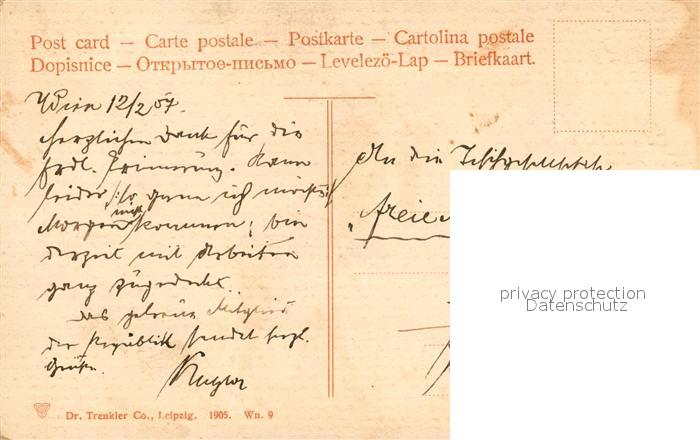 Post card — Carte postale — Postkarte — Cartolina postale
Dopisnice — Открытое-письмо — Levelező-Lap — Briefkaart.
Wien 12/2 07.
Herzlichen Dank für die
frdl. Erinnerung. Kann
leider /:so gern ich möchte:/
Morgen nicht kommen; bin
derzeit mit Arbeiten
ganz zugedeckt.
Das getreue Mitglied
der Republik sendet herzl.
Grüße.
An die
„freie
privacy protection
Datenschutz
Dr. Trenkler Co., Leipzig. 1905. Wn. 9